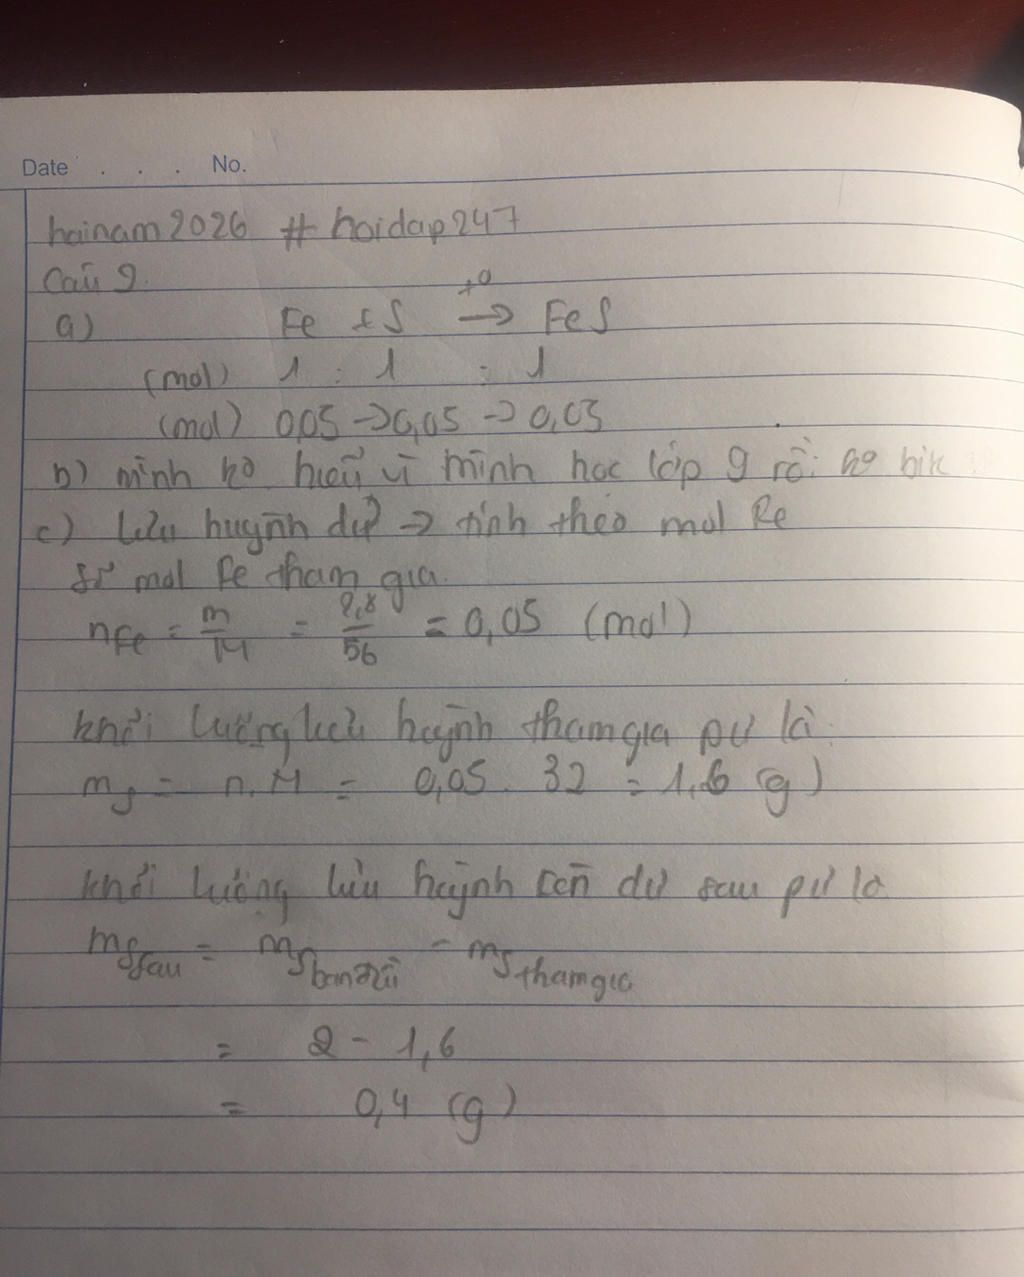 Date . . . No.
hainam2026 # hoidap247
Câu 9.
a) Fe + S →t° FeS
(mol) 1 : 1 : 1
(mol) 0,05 → 0,05 → 0,05
b) mình ko hiểu vì mình học lớp 9 rồi ko bik
c) Lưu huỳnh dư → tính theo mol Fe
Số mol Fe tham gia.
nFe = m/M = 2,8/56 = 0,05 (mol)
khối lượng lưu huỳnh tham gia pư là:
mS = n.M = 0,05 32 = 1,6 (g)
khối lượng lưu huỳnh còn dư sau pư là
mS sau = mS ban đầu - mS tham gia
= 2 - 1,6
= 0,4 (g)